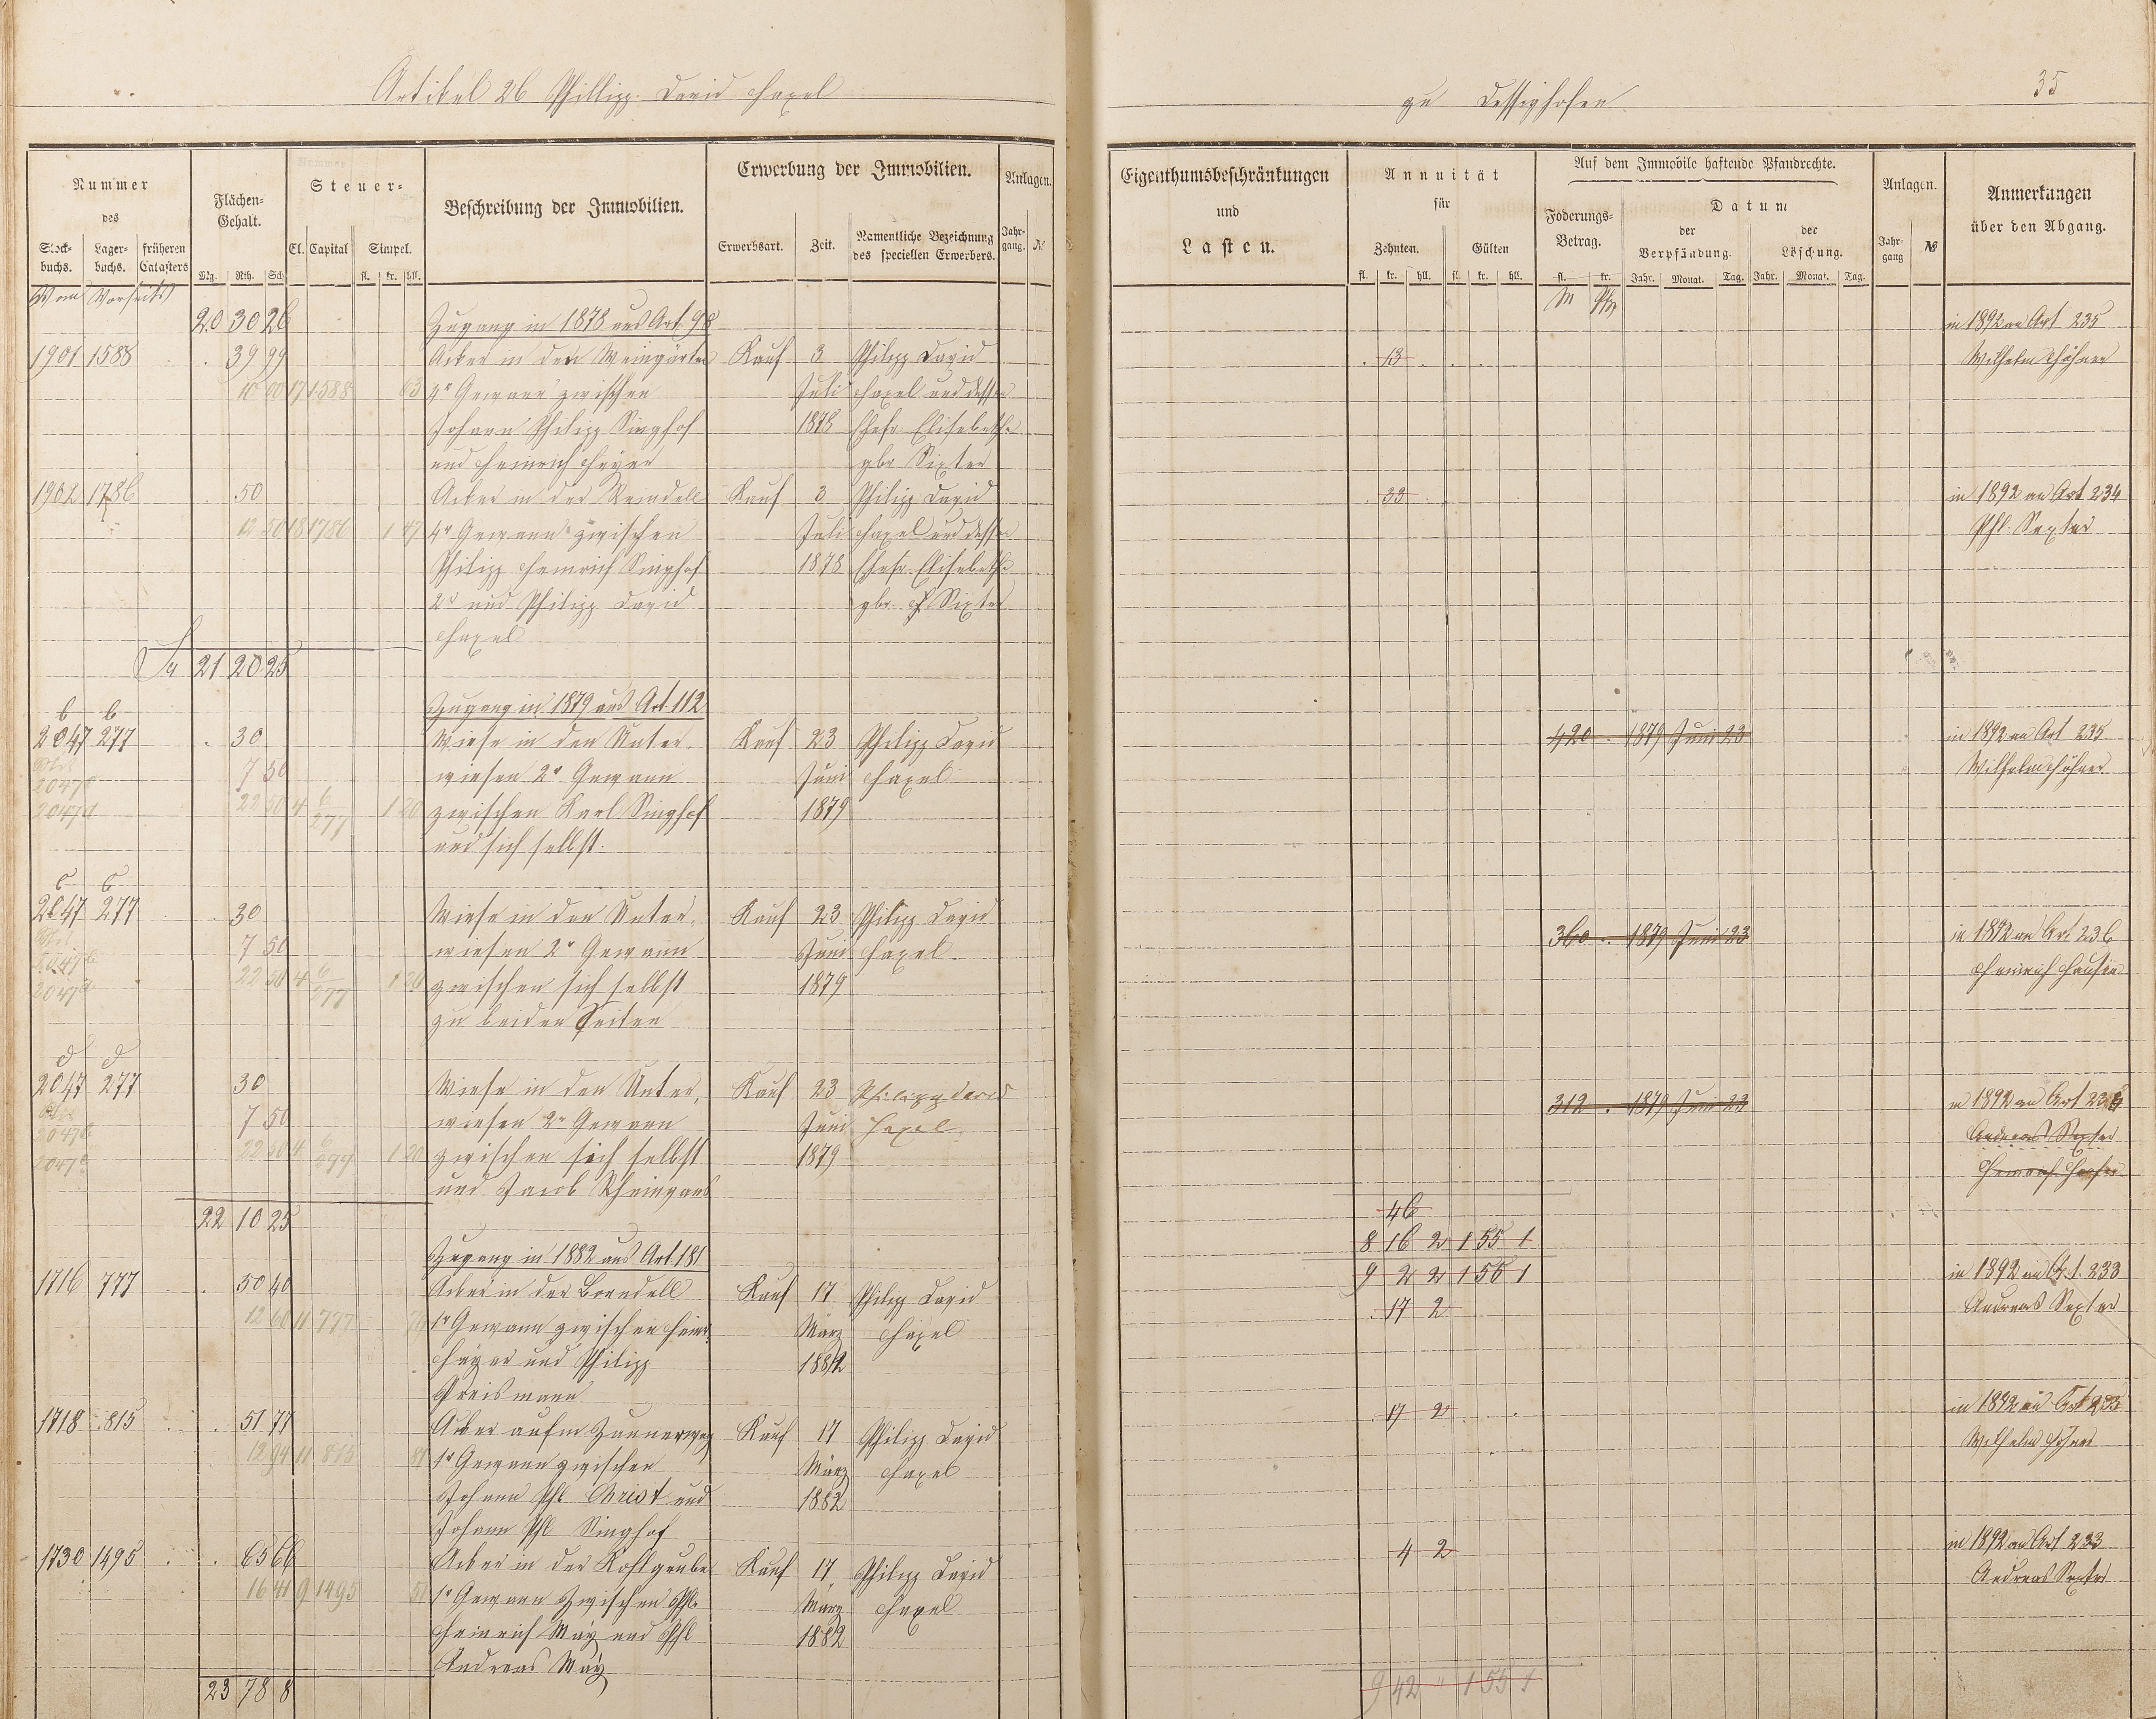 Artikel 26 Phillipp David Haxel
zu Dessighofen
35
Nummer des
Stock-buchs. Lager-buchs. früheren Catasters
Flächen-Gehalt.
Mg. Rth. Sch.
Steuer-
Cl. Capital Simpel.
fl. kr. hll.
Beschreibung der Immobilien.
Erwerbung der Immobilien.
Erwerbsart. Zeit. Namentliche Bezeichnung des speciellen Erwerbers.
Anlagen.
Jahr-gang. №
Eigenthumsbeschränkungen und Lasten.
Annuität für
Zehnten. Gülten
fl. kr. hll. fl. kr. hll.
Auf dem Immobile haftende Pfandrechte.
Foderungs-Betrag.
fl. kr.
Datum
der Verpfändung. der Löschung.
Jahr. Monat. Tag. Jahr. Monat. Tag.
Anlagen.
Jahr-gang №
Anmerkungen über den Abgang.
Von Vorseits
M Pfg
20 30 26 Zugang in 1878 aus Art. 98 in 1892 an Art 235
1901 1588 39 99 Acker in den Weingärten Kauf 3 Philipp David 13 Wilhelm Höhner
10 00 17 1588 63 4r Gewann zwischen Juli Haxel und dessen
Johann Philipp Singhof 1878 Ehefr. Elisabethe
und Heinrich Heyer gbr Sixter
1902 1786 50 Acker in der Reindell Kauf 3 Philipp David 33 in 1892 an Art 234
12 50 18 1786 1 47 4r Gewann zwischen Juli Haxel und dessen Phl. Sexter
Philipp Heinrich Singhof 1878 Ehefr. Elisabethe
2r und Philipp David gbr. Sixter
Haxel
Sa 21 20 25
b b Zugang in 1879 aus Art. 112
2047 277 30 Wiese in den Unter- Kauf 23 Philipp David 420 1879 Juni 23 in 1892 an Art 235
7 50 wiesen 2r Gewann Juni Haxel Wilhelm Höhner
2047d 22 50 4 6/277 1 20 zwischen Karl Singhof 1879
und sich selbst.
c c
2047 277 30 Wiese in den Unter- Kauf 23 Philipp David 360 1879 Juni 23 in 1892 an Art 236
7 50 wiesen 2r Gewann Juni Haxel Heinrich
22 50 4 6/277 1 20 zwischen sich selbst 1879
zu beiden Seiten
d d
2047 277 30 Wiese in den Unter- Kauf 23 Philipp David 312 1879 Juni 23 in 1892 an Art
7 50 wiesen 2r Gewann Juni Haxel Andreas Sexter
22 50 4 6/277 1 20 zwischen sich selbst 1879 Heinrich
und Jacob Rheingans
22 10 25 46
8 16 2 1 55 1
Zugang in 1882 aus Art. 181
9 2 2 1 55 1
1716 777 50 40 Acker in der Borndell Kauf 17 Philipp David 17 2 in 1892 an Art. 233
12 60 11 777 1r Gewann zwischen Heinr. März Haxel Andreas Sexter
Heyer und Philipp 1882
Preismann
1718 815 51 77 Acker aufm Zaunerweg Kauf 17 Philipp David 17 2 in 1892 an Art
12 94 11 815 81 1r Gewann zwischen März Haxel Wilhelm Höhner
Johann Phl Brist und 1882
Johann Phl Singhof
1730 1495 65 66 Acker in der Kohlgrube Kauf 17 Philipp David 4 2 in 1892 an Art 233
16 41 9 1495 51 1r Gewann zwischen Phl. März Haxel Andreas Sexter
Heinrich May und Phl 1882
Andreas May
23 78 8 9 42 " 1 55 1